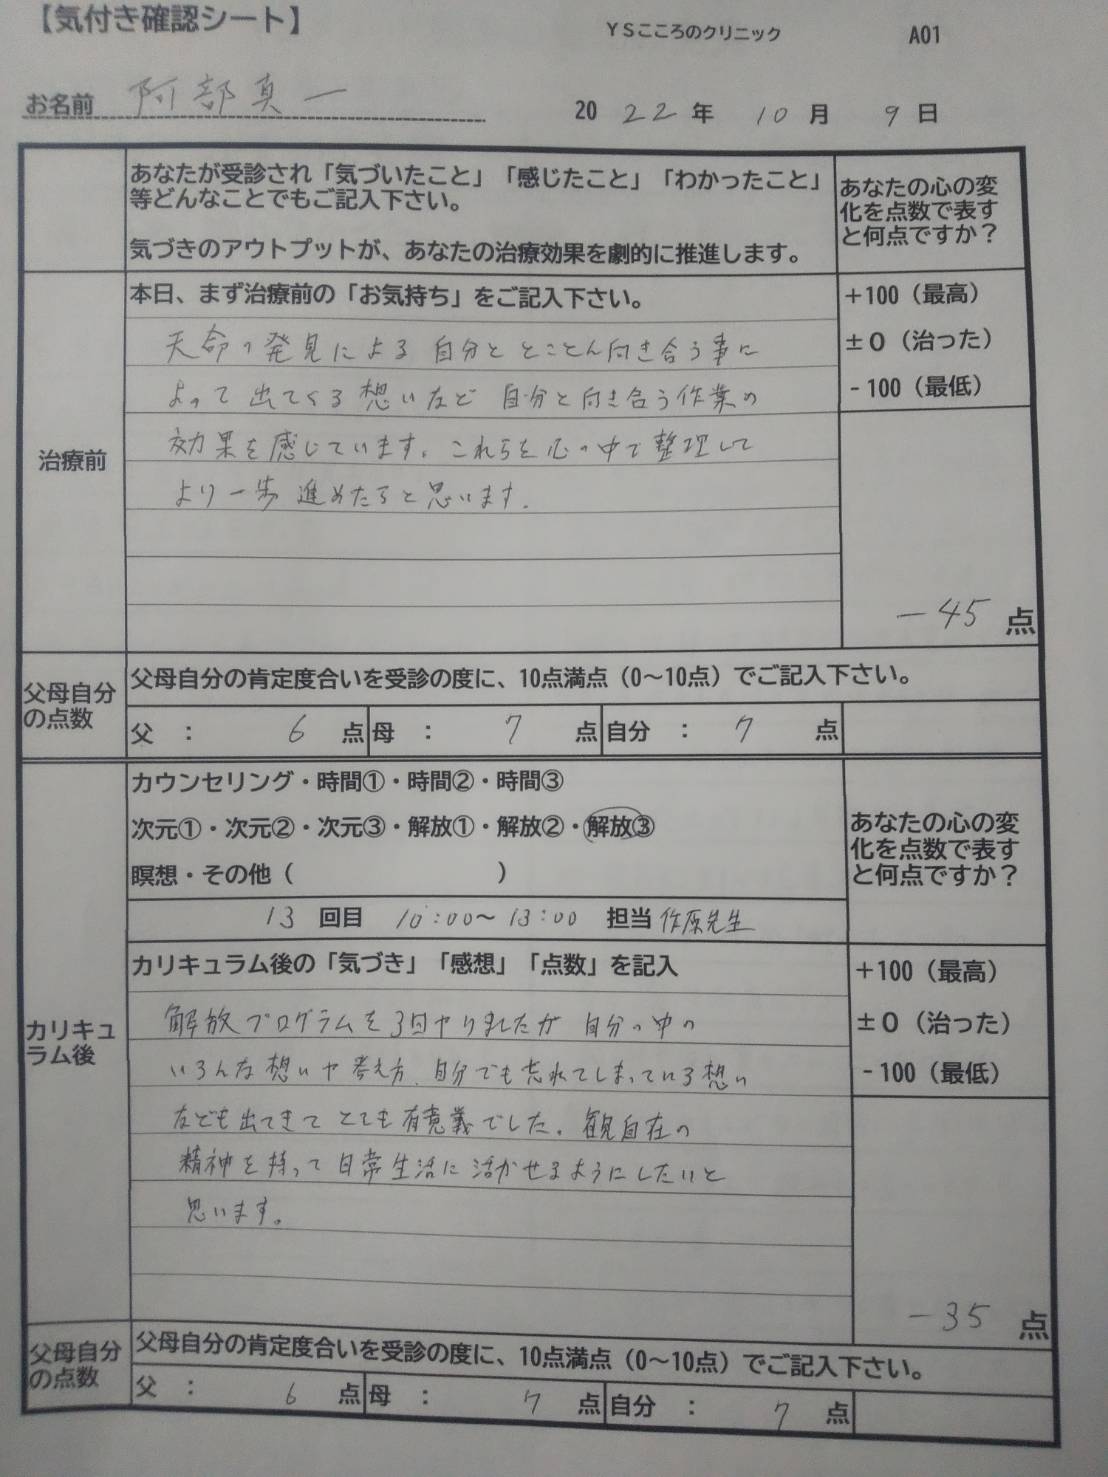 【気付き確認シート】
YSこころのクリニック A01
お名前 阿部真一
2022年10月9日
あなたが受診され「気づいたこと」「感じたこと」「わかったこと」
等どんなことでもご記入下さい。
気づきのアウトプットが、あなたの治療効果を劇的に推進します。
あなたの心の変
化を点数で表す
と何点ですか？
治療前
本日、まず治療前の「お気持ち」をご記入下さい。
天命の発見による 自分と とことん向き合う事に
よって 出てくる 想いなど 自分と向き合う作業の
効果を感じています。これらを心の中で整理して
より一歩 進めたらと思います。
+100（最高）
±0（治った）
-100（最低）
-45 点
父母自分
の点数
父母自分の肯定度合いを受診の度に、10点満点（0～10点）でご記入下さい。
父 ： 6 点 母 ： 7 点 自分 ： 7 点
カリキュ
ラム後
カウンセリング・時間①・時間②・時間③
次元①・次元②・次元③・解放①・解放②・解放③
瞑想・その他（ ）
13 回目 10:00～13:00 担当 作原先生
あなたの心の変
化を点数で表す
と何点ですか？
カリキュラム後の「気づき」「感想」「点数」を記入
解放プログラムを3回やりましたが 自分の中の
いろんな想いや考え方、自分でも忘れてしまっている想い
なども出てきて とても有意義でした。観自在の
精神を持って日常生活に活かせるようにしたいと
思います。
+100（最高）
±0（治った）
-100（最低）
-35 点
父母自分
の点数
父母自分の肯定度合いを受診の度に、10点満点（0～10点）でご記入下さい。
父 ： 6 点 母 ： 7 点 自分 ： 7 点